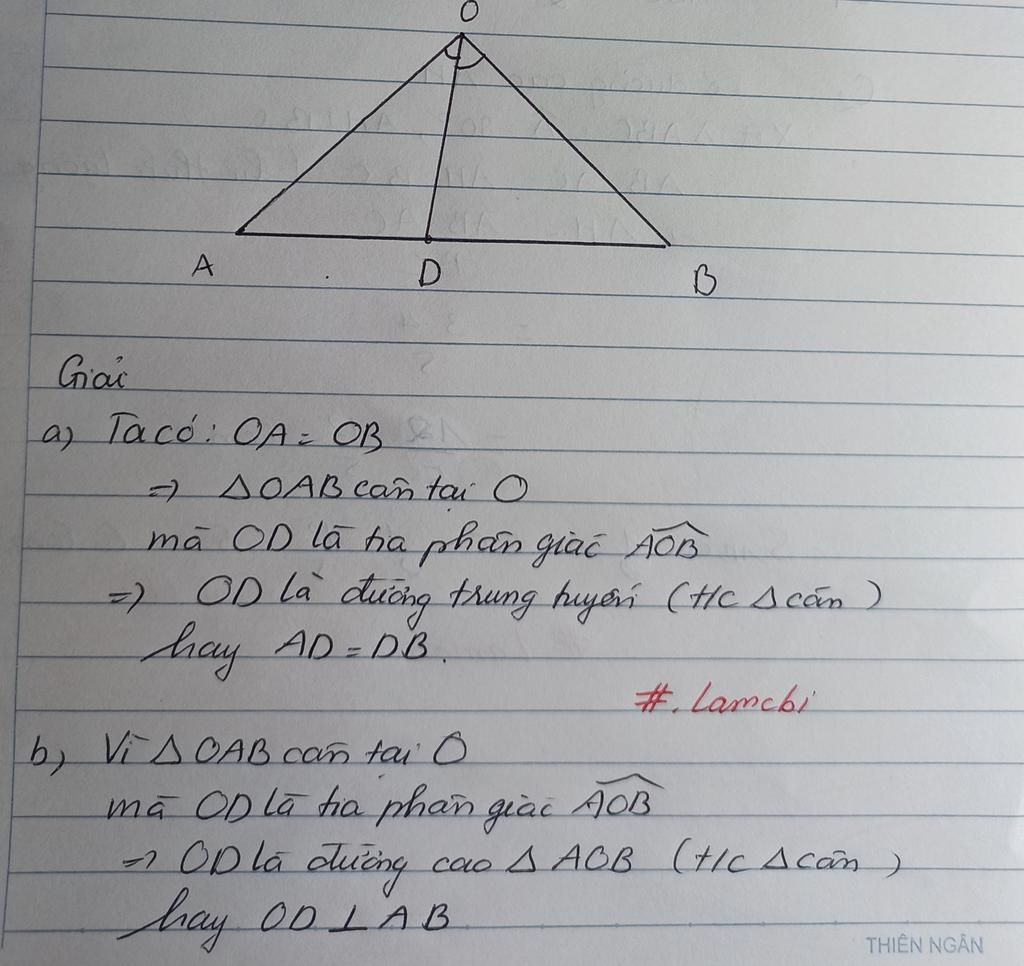 O
A
D
B
Giải
a) Ta có: OA = OB
=> ΔOAB cân tại O
mà OD là tia phân giác AOB
=> OD là đường trung tuyến (t/c Δ cân)
hay AD = DB.
#. Lamchi
b) Vì ΔOAB cân tại O
mà OD là tia phân giác AOB
=> OD là đường cao Δ AOB (t/c Δ cân)
hay OD ⊥ AB
THIÊN NGÂN